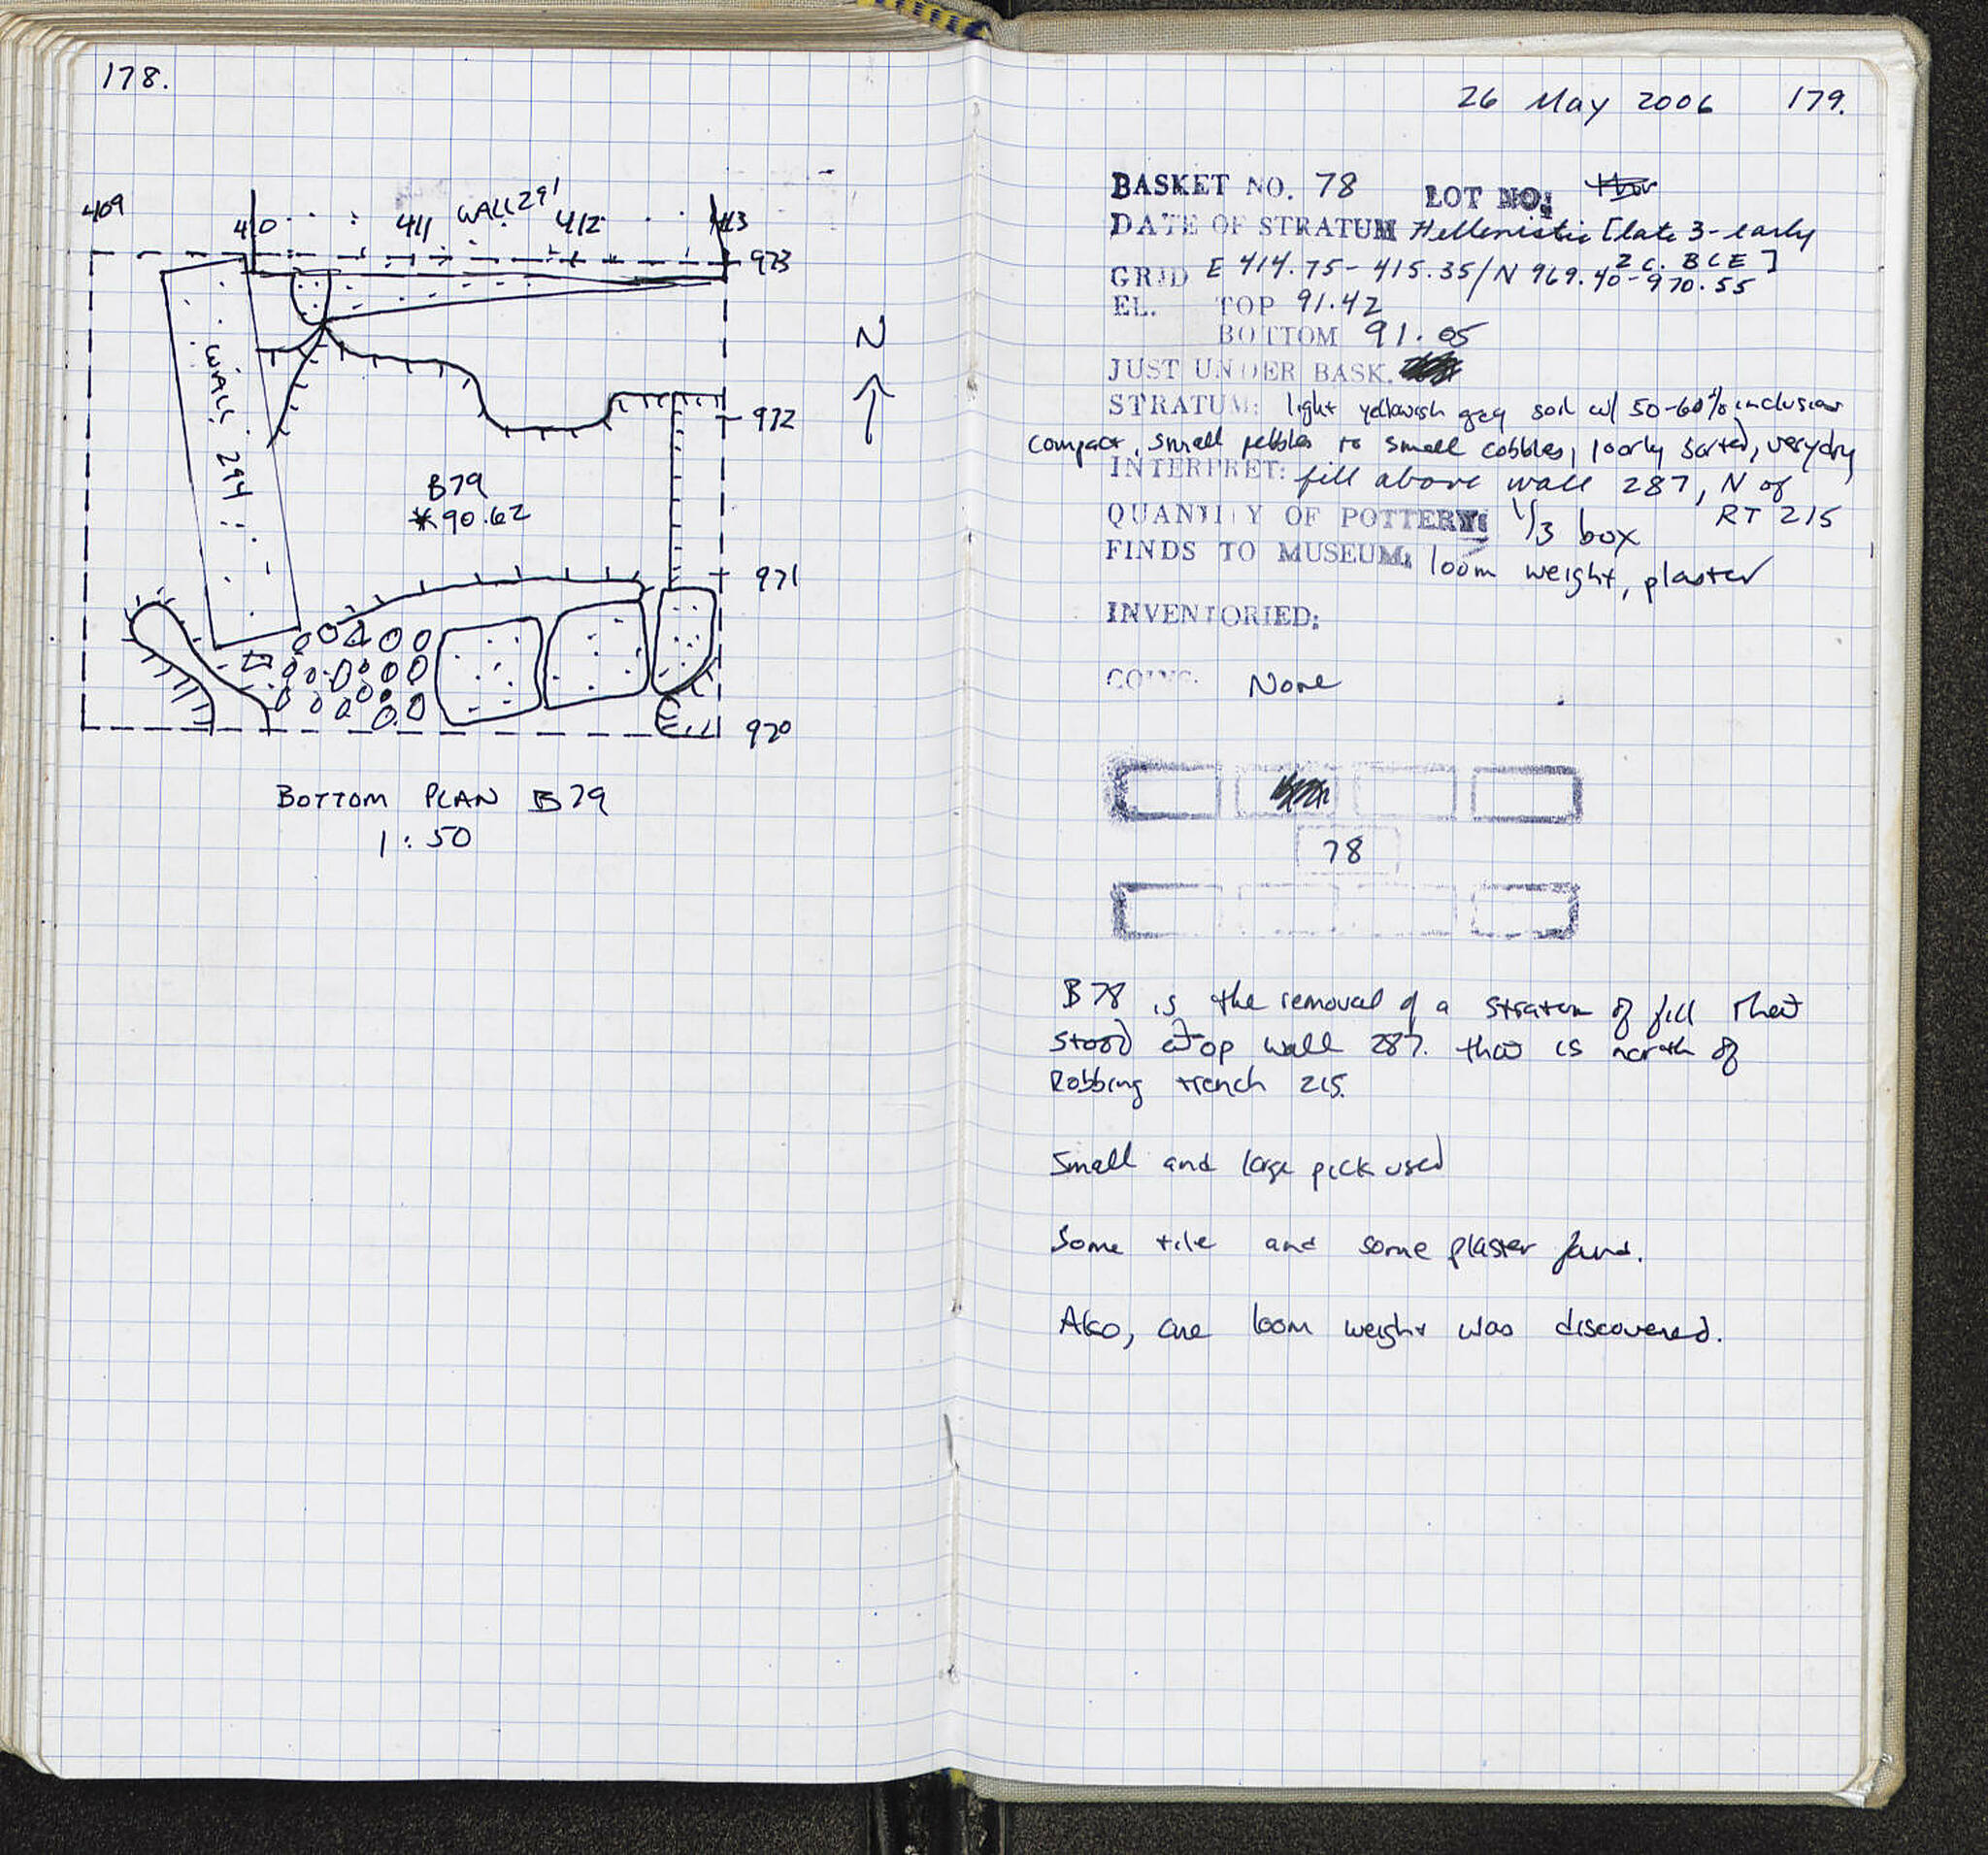 178.
409
410
411
WALL 291
412
413
973
N
WALL 294
972
B79
*90.62
971
970
BOTTOM PLAN B79
1:50
26 May 2006 179.
BASKET NO. 78 LOT NO:
DATE OF STRATUM Hellenistic [late 3-early
2 c. BCE]
GRID E 414.75-415.35/N 969.40-970.55
EL. TOP 91.42
BOTTOM 91.05
JUST UNDER BASK.
STRATUM: light yellowish gray soil w/ 50-60% inclusions
compact, small pebbles to small cobbles, poorly sorted, very dry
INTERPRET: fill above wall 287, N of
RT 215
QUANTITY OF POTTERY: 1/3 box
FINDS TO MUSEUM: loom weight, plaster
INVENTORIED:
COINS: None
78
B78 is the removal of a stratum of fill that
stood atop wall 287. that is north of
Robbing trench 215.
Small and large pick used
Some tile and some plaster found.
Also, one loom weight was discovered.